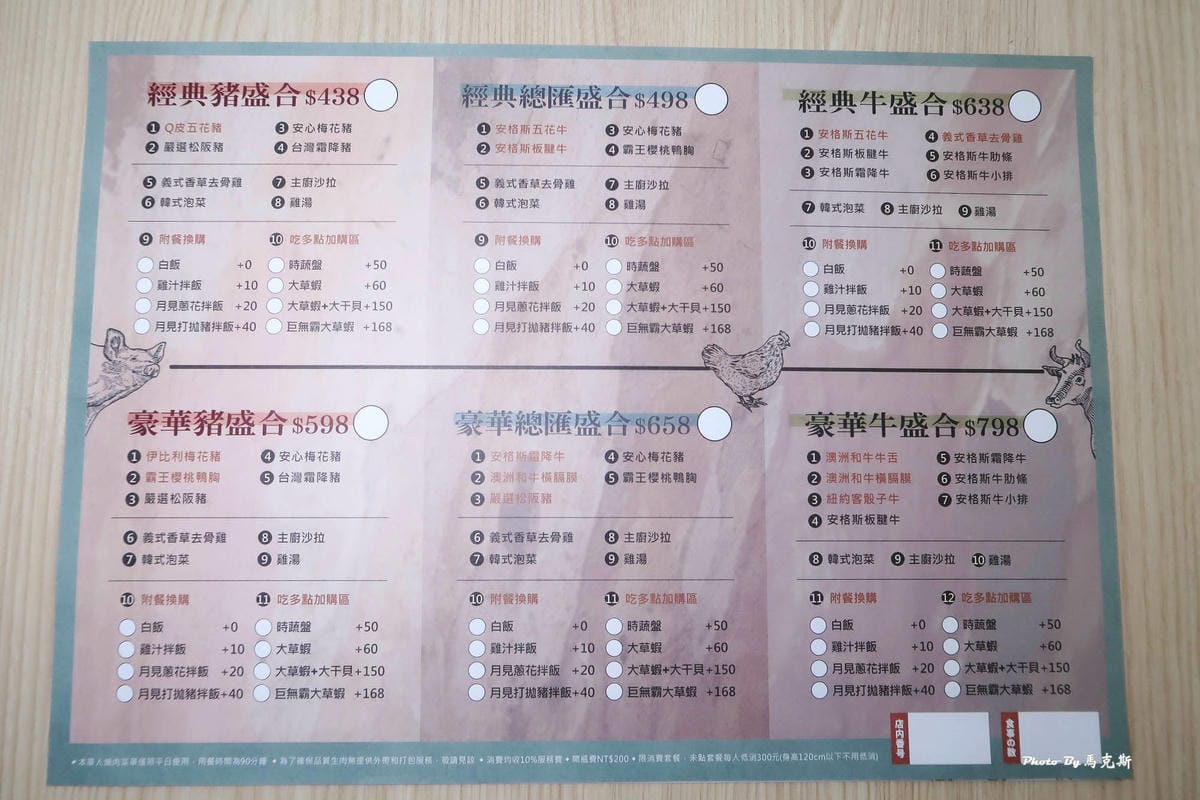 經典豬盛合 $438
❶ Q皮五花豬 ❸ 安心梅花豬
❷ 嚴選松阪豬 ❹ 台灣霜降豬
❺ 義式香草去骨雞 ❼ 主廚沙拉
❻ 韓式泡菜 ❽ 雞湯
❾ 附餐換購 ❿ 吃多點加購區
白飯 +0 時蔬盤 +50
雞汁拌飯 +10 大草蝦 +60
月見蔥花拌飯 +20 大草蝦+大干貝+150
月見打拋豬拌飯+40 巨無霸大草蝦 +168
經典總匯盛合 $498
❶ 安格斯五花牛 ❸ 安心梅花豬
❷ 安格斯板腱牛 ❹ 霸王櫻桃鴨胸
❺ 義式香草去骨雞 ❼ 主廚沙拉
❻ 韓式泡菜 ❽ 雞湯
❾ 附餐換購 ❿ 吃多點加購區
白飯 +0 時蔬盤 +50
雞汁拌飯 +10 大草蝦 +60
月見蔥花拌飯 +20 大草蝦+大干貝+150
月見打拋豬拌飯+40 巨無霸大草蝦 +168
經典牛盛合 $638
❶ 安格斯五花牛 ❹ 義式香草去骨雞
❷ 安格斯板腱牛 ❺ 安格斯牛肋條
❸ 安格斯霜降牛 ❻ 安格斯牛小排
❼ 韓式泡菜 ❽ 主廚沙拉 ❾ 雞湯
❿ 附餐換購 ⓫ 吃多點加購區
白飯 +0 時蔬盤 +50
雞汁拌飯 +10 大草蝦 +60
月見蔥花拌飯 +20 大草蝦+大干貝+150
月見打拋豬拌飯+40 巨無霸大草蝦 +168
豪華豬盛合 $598
❶ 伊比利梅花豬 ❹ 安心梅花豬
❷ 霸王櫻桃鴨胸 ❺ 台灣霜降豬
❸ 嚴選松阪豬
❻ 義式香草去骨雞 ❽ 主廚沙拉
❼ 韓式泡菜 ❾ 雞湯
❿ 附餐換購 ⓫ 吃多點加購區
白飯 +0 時蔬盤 +50
雞汁拌飯 +10 大草蝦 +60
月見蔥花拌飯 +20 大草蝦+大干貝+150
月見打拋豬拌飯+40 巨無霸大草蝦 +168
豪華總匯盛合 $658
❶ 安格斯霜降牛 ❹ 安心梅花豬
❷ 澳洲和牛橫膈膜 ❺ 霸王櫻桃鴨胸
❸ 嚴選松阪豬
❻ 義式香草去骨雞 ❽ 主廚沙拉
❼ 韓式泡菜 ❾ 雞湯
❿ 附餐換購 ⓫ 吃多點加購區
白飯 +0 時蔬盤 +50
雞汁拌飯 +10 大草蝦 +60
月見蔥花拌飯 +20 大草蝦+大干貝+150
月見打拋豬拌飯+40 巨無霸大草蝦 +168
豪華牛盛合 $798
❶ 澳洲和牛牛舌 ❺ 安格斯霜降牛
❷ 澳洲和牛橫膈膜 ❻ 安格斯牛肋條
❸ 紐約客骰子牛 ❼ 安格斯牛小排
❹ 安格斯板腱牛
❽ 韓式泡菜 ❾ 主廚沙拉 ❿ 雞湯
⓫ 附餐換購 ⓬ 吃多點加購區
白飯 +0 時蔬盤 +50
雞汁拌飯 +10 大草蝦 +60
月見蔥花拌飯 +20 大草蝦+大干貝+150
月見打拋豬拌飯+40 巨無霸大草蝦 +168
店内番号
食事の数
本單人燒肉菜單僅限平日使用，用餐時間為90分鐘 為了確保品質生肉無提供外帶和打包服務，敬請見諒 消費均收10%服務費 開瓶費NT$200 限消費套餐，未點套餐每人低消300元(身高120cm以下不用低消)
Photo By 馬克斯